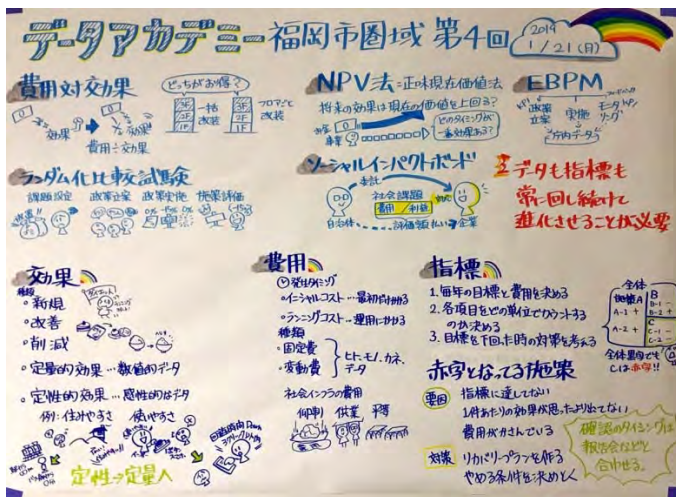 データアカデミー福岡市圏域 第4回
2019
1/21(月)
費用対効果
どっちがお得?
一括
改装
フロアごと
改装
3F
2F
1F
3F
2F
1F
効果
費用÷効果
NPV法=正味現在価値法
将来の効果は現在の価値を上回る?
事業
どのタイミングが
一番効果ある?
EBPM
政策
立案
実施
モニタ
リング
庁内データ
ランダム化比較試験
課題設定 政策立案 政策実施 施策評価
ソーシャルインパクトボンド
委託
社会課題
費用/利益
自治体
評価額払い
企業
データも指標も
常に回し続けて
進化させることが必要
効果
種類
・新規
・改善
・削減
・定量的効果…数値的データ
・定性的効果…感性的なデータ
例:住みやすさ 使いやすさ
定性→定量へ
費用
発生タイミング
・イニシャルコスト…最初だけかかる
・ランニングコスト…運用にかかる
種類
・固定費
・変動費
ヒト、モノ、カネ、
データ
社会インフラの費用
平等
指標
1. 毎年の目標と費用を決める
2. 各項目をどの単位でカウントする
のか決める
3. 目標を下回った時の対策を考える
全体
地域A
A-1 +
A-2 +
B
B-1 -
B-2 +
C
C-1 -
全体黒字でも
Cは赤字!!
赤字となってる施策
要因
指標に達してない
1件あたりの効果が思ったより出てない
費用がかさんでいる
対策
リカバリープランを作る
やめる条件を決めとく
確認のタイミングは
報告会などと
合わせる。